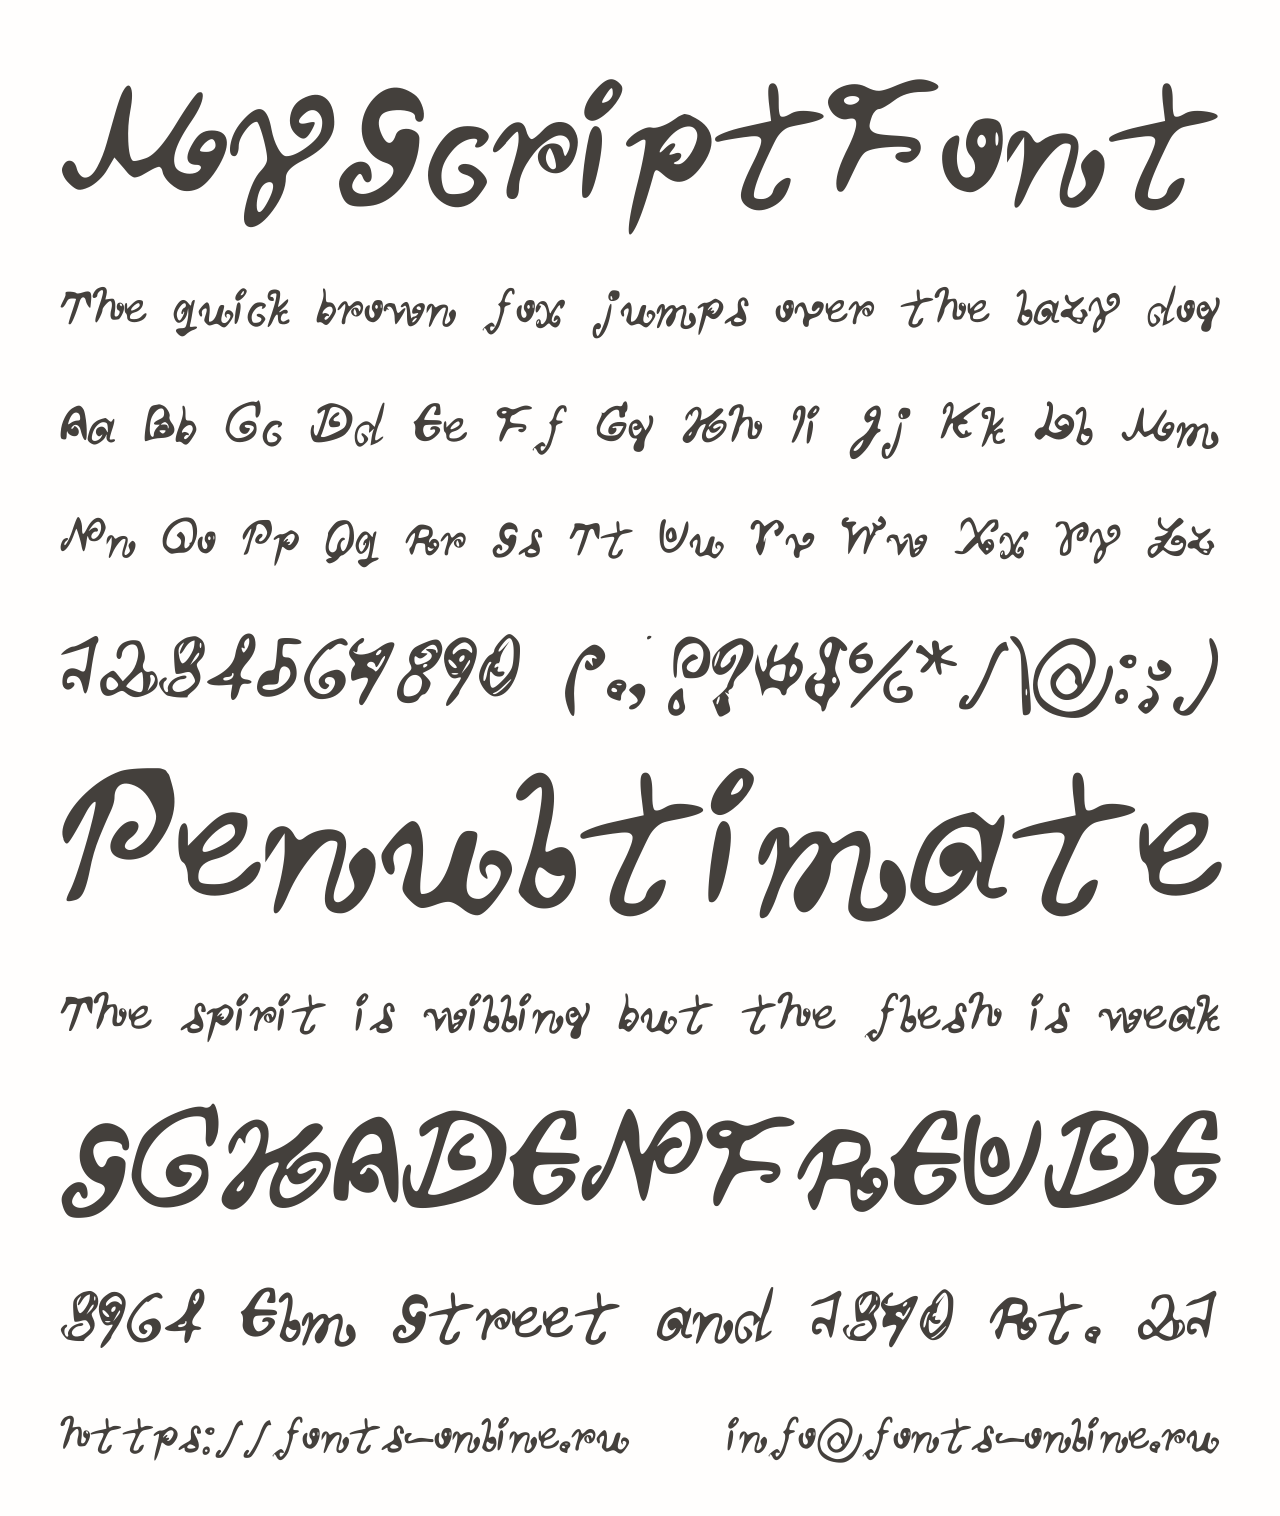 MyScriptFont
The quick brown fox jumps over the lazy dog
Aa Bb Cc Dd Ee Ff Gg Hh Ii Jj Kk Ll Mm
Nn Oo Pp Qq Rr Ss Tt Uu Vv Ww Xx Yy Zz
1234567890 (.,'!?#$%*/\@:;)
Penultimate
The spirit is willing but the flesh is weak
SCHADENFREUDE
3964 Elm Street and 1370 Rt. 21
https://fonts-online.ru info@fonts-online.ru